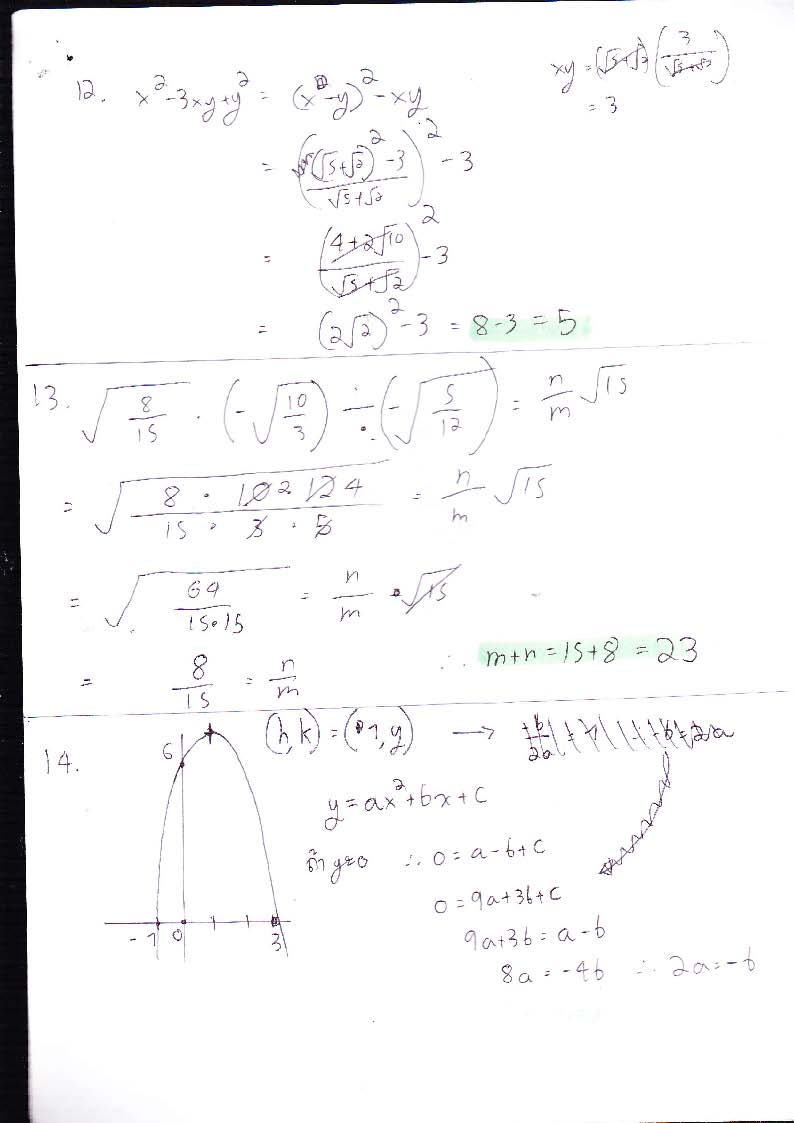 12. x² - 3xy + y² = (x - y)² - xy
xy = (√5+√2) (3/(√5+√2))
= 3
= (((√5+√2)² - 3)/(√5+√2))² - 3
= ((4+2√10)/(√5+√2))² - 3
= (2√2)² - 3 = 8-3 = 5
13. √(8/15) · (-√(10/3)) ÷ (-√(5/12)) = n/m √15
= √((8 · 10 2 12 4)/(15 · 3 · 5)) = n/m √15
= √(64/(15·15)) = n/m · √15
= 8/15 = n/m ∴ m+n = 15+8 = 23
14. 6 (h,k) = (1,y) →
y = ax² + bx + c
ถ้า y=0 ∴ 0 = a-b+c
0 = 9a+3b+c
-1 0 3 9a+3b = a-b
8a = -4b ∴ 2a = -b